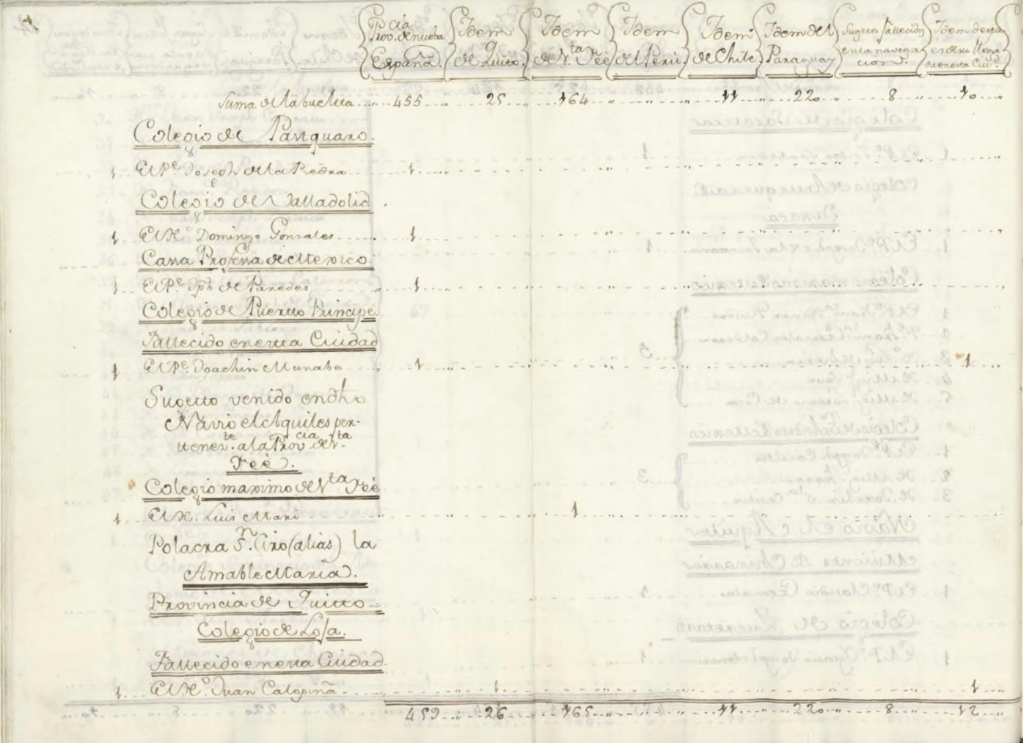 Prov.cia de nueba España. Idem de Quito. Idem de S.ta Feè Idem del Perù Idem de Chile Idem del Paraguay Sugetos fallecidos en la navegacion. Idem despues en esta Ciu.d
Suma de la buelta 455 25 164 11 220 8 10
Colegio de Pasquaro.
1 El P.e Joseph de la Padra 1
Colegio de Valladolid
1 El H.o Domingo Gonzales 1
Cassa Profesa de Mexico
1 El P.e Jph. de Paredes 1
Colegio de Puerto Principe
Fallecido en esta Ciudad
1 El P.e Joachin Munabe 1 1
Sugetto venido en dho
Navio el Aquiles per-
tenez.te a la Prov.cia de S.ta
Feè.
Colegio maximo de S.ta Feè
1 El H. Luis Mard 1
Polacra S.n Ciro (alias) la
Amable Maria.
Provincia de Quitto
Colegio de Loja.
Fallecido en esta Ciudad
1 El H.o Juan Calopiña 1 1
459 26 165 11 220 8 12